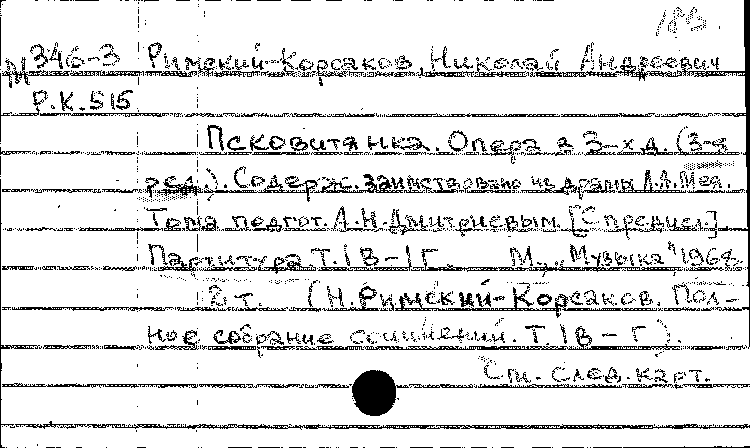 183.
М 346-3 Римский-Корсаков, Николай Андреевич
Р.К.515
Псковитянка. Опера в 3-х д. (3-я
ред.). Содерж. заимствовано из драмы Л.А.Мея.
Тома подгот. А.Н.Дмитриевым. [С предисл.]
Партитура Т.1В-1Г. М., „Музыка" 1968
2 т. (Н.Римский-Корсаков. Пол-
ное собрание сочинений. Т.1В-Г).
См. след. карт.